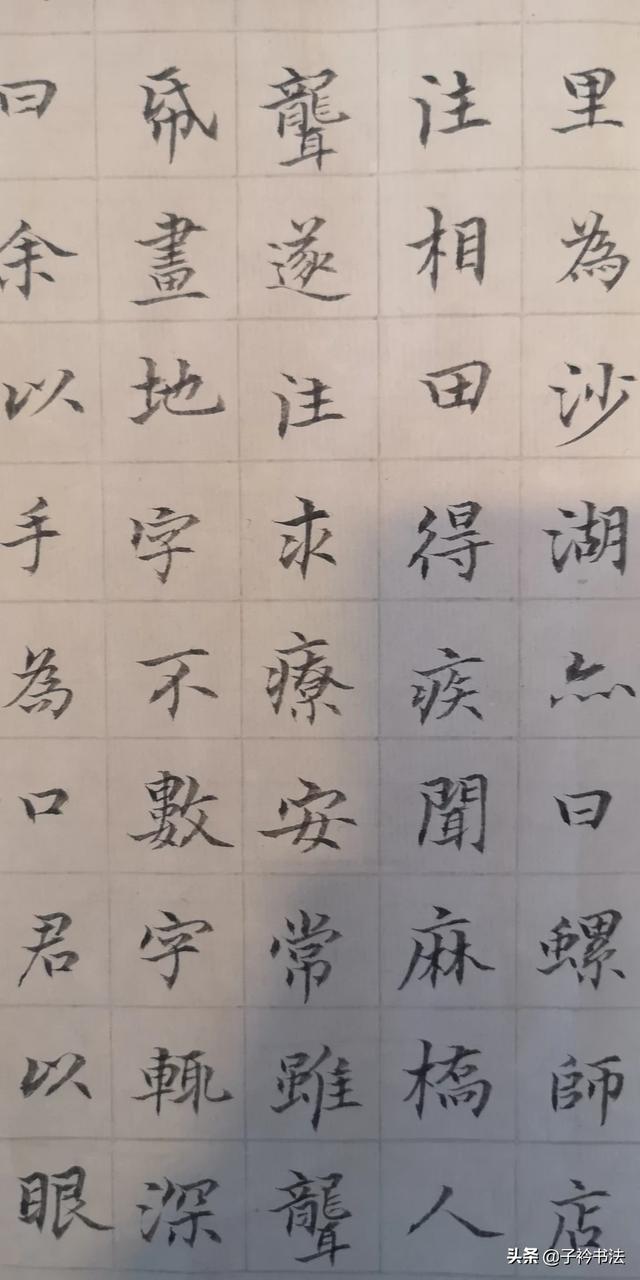 里為沙湖亦曰螺師店
注相田得疾聞麻橋人
聾遂注求療安常雖聾
紙畫地字不數字輒深
曰余以手為口君以眼
头条 @子衿书法